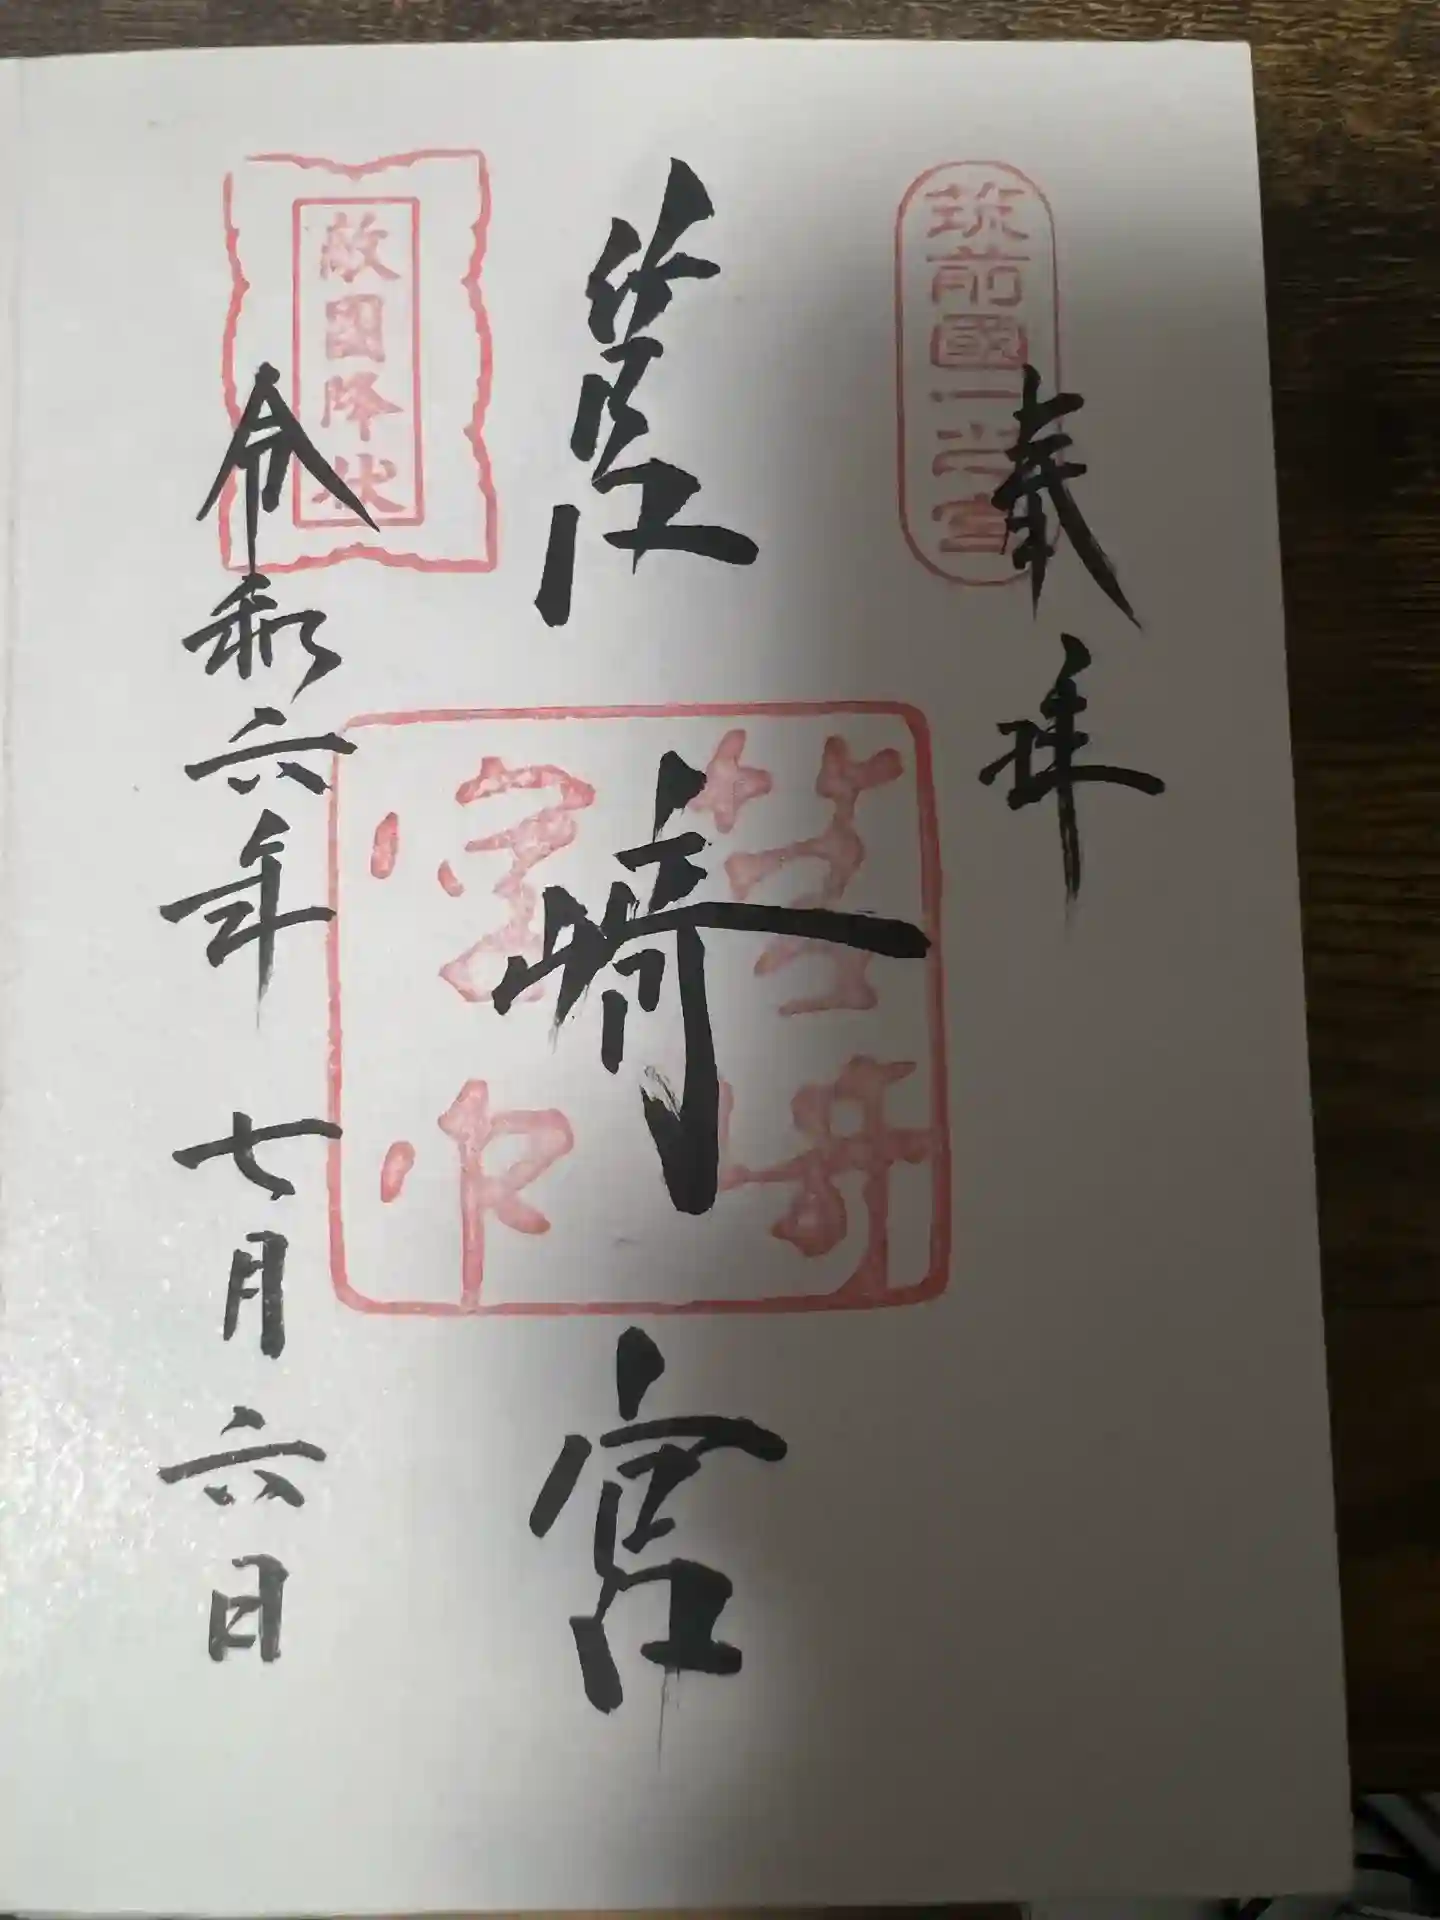 奉拝
筑前國一之宮
筥崎宮
筥崎
宮印
敵國降伏
令和六年 七月六日